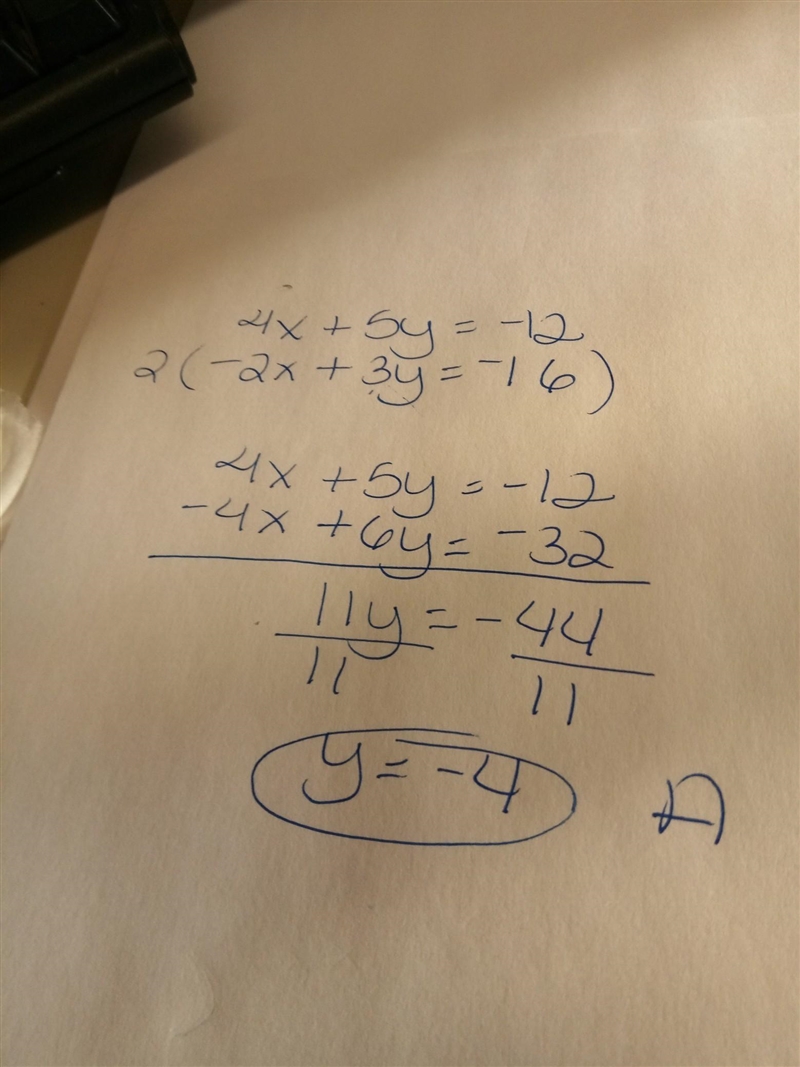 4x + 5y = -12
2(-2x + 3y = -16)
4x + 5y = -12
-4x + 6y = -32
11y = -44
11 11
y = -4 A